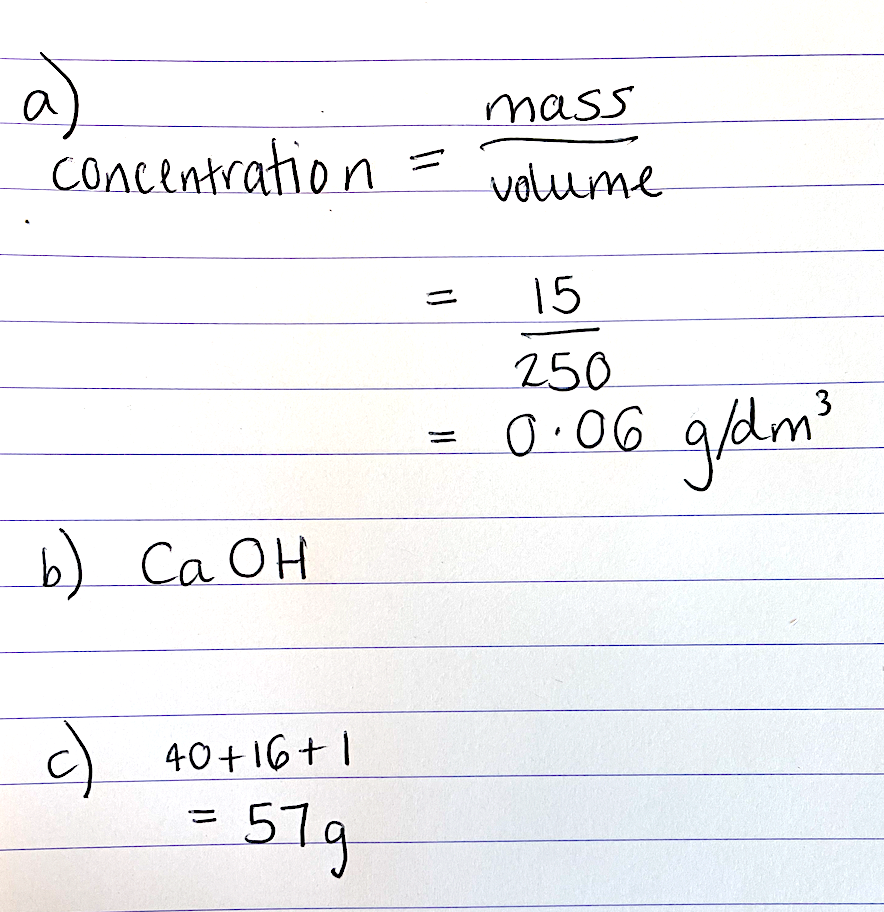 a)
concentration = mass / volume
= 15 / 250
= 0.06 g/dm³
b) Ca OH
c) 40+16+1
= 57g